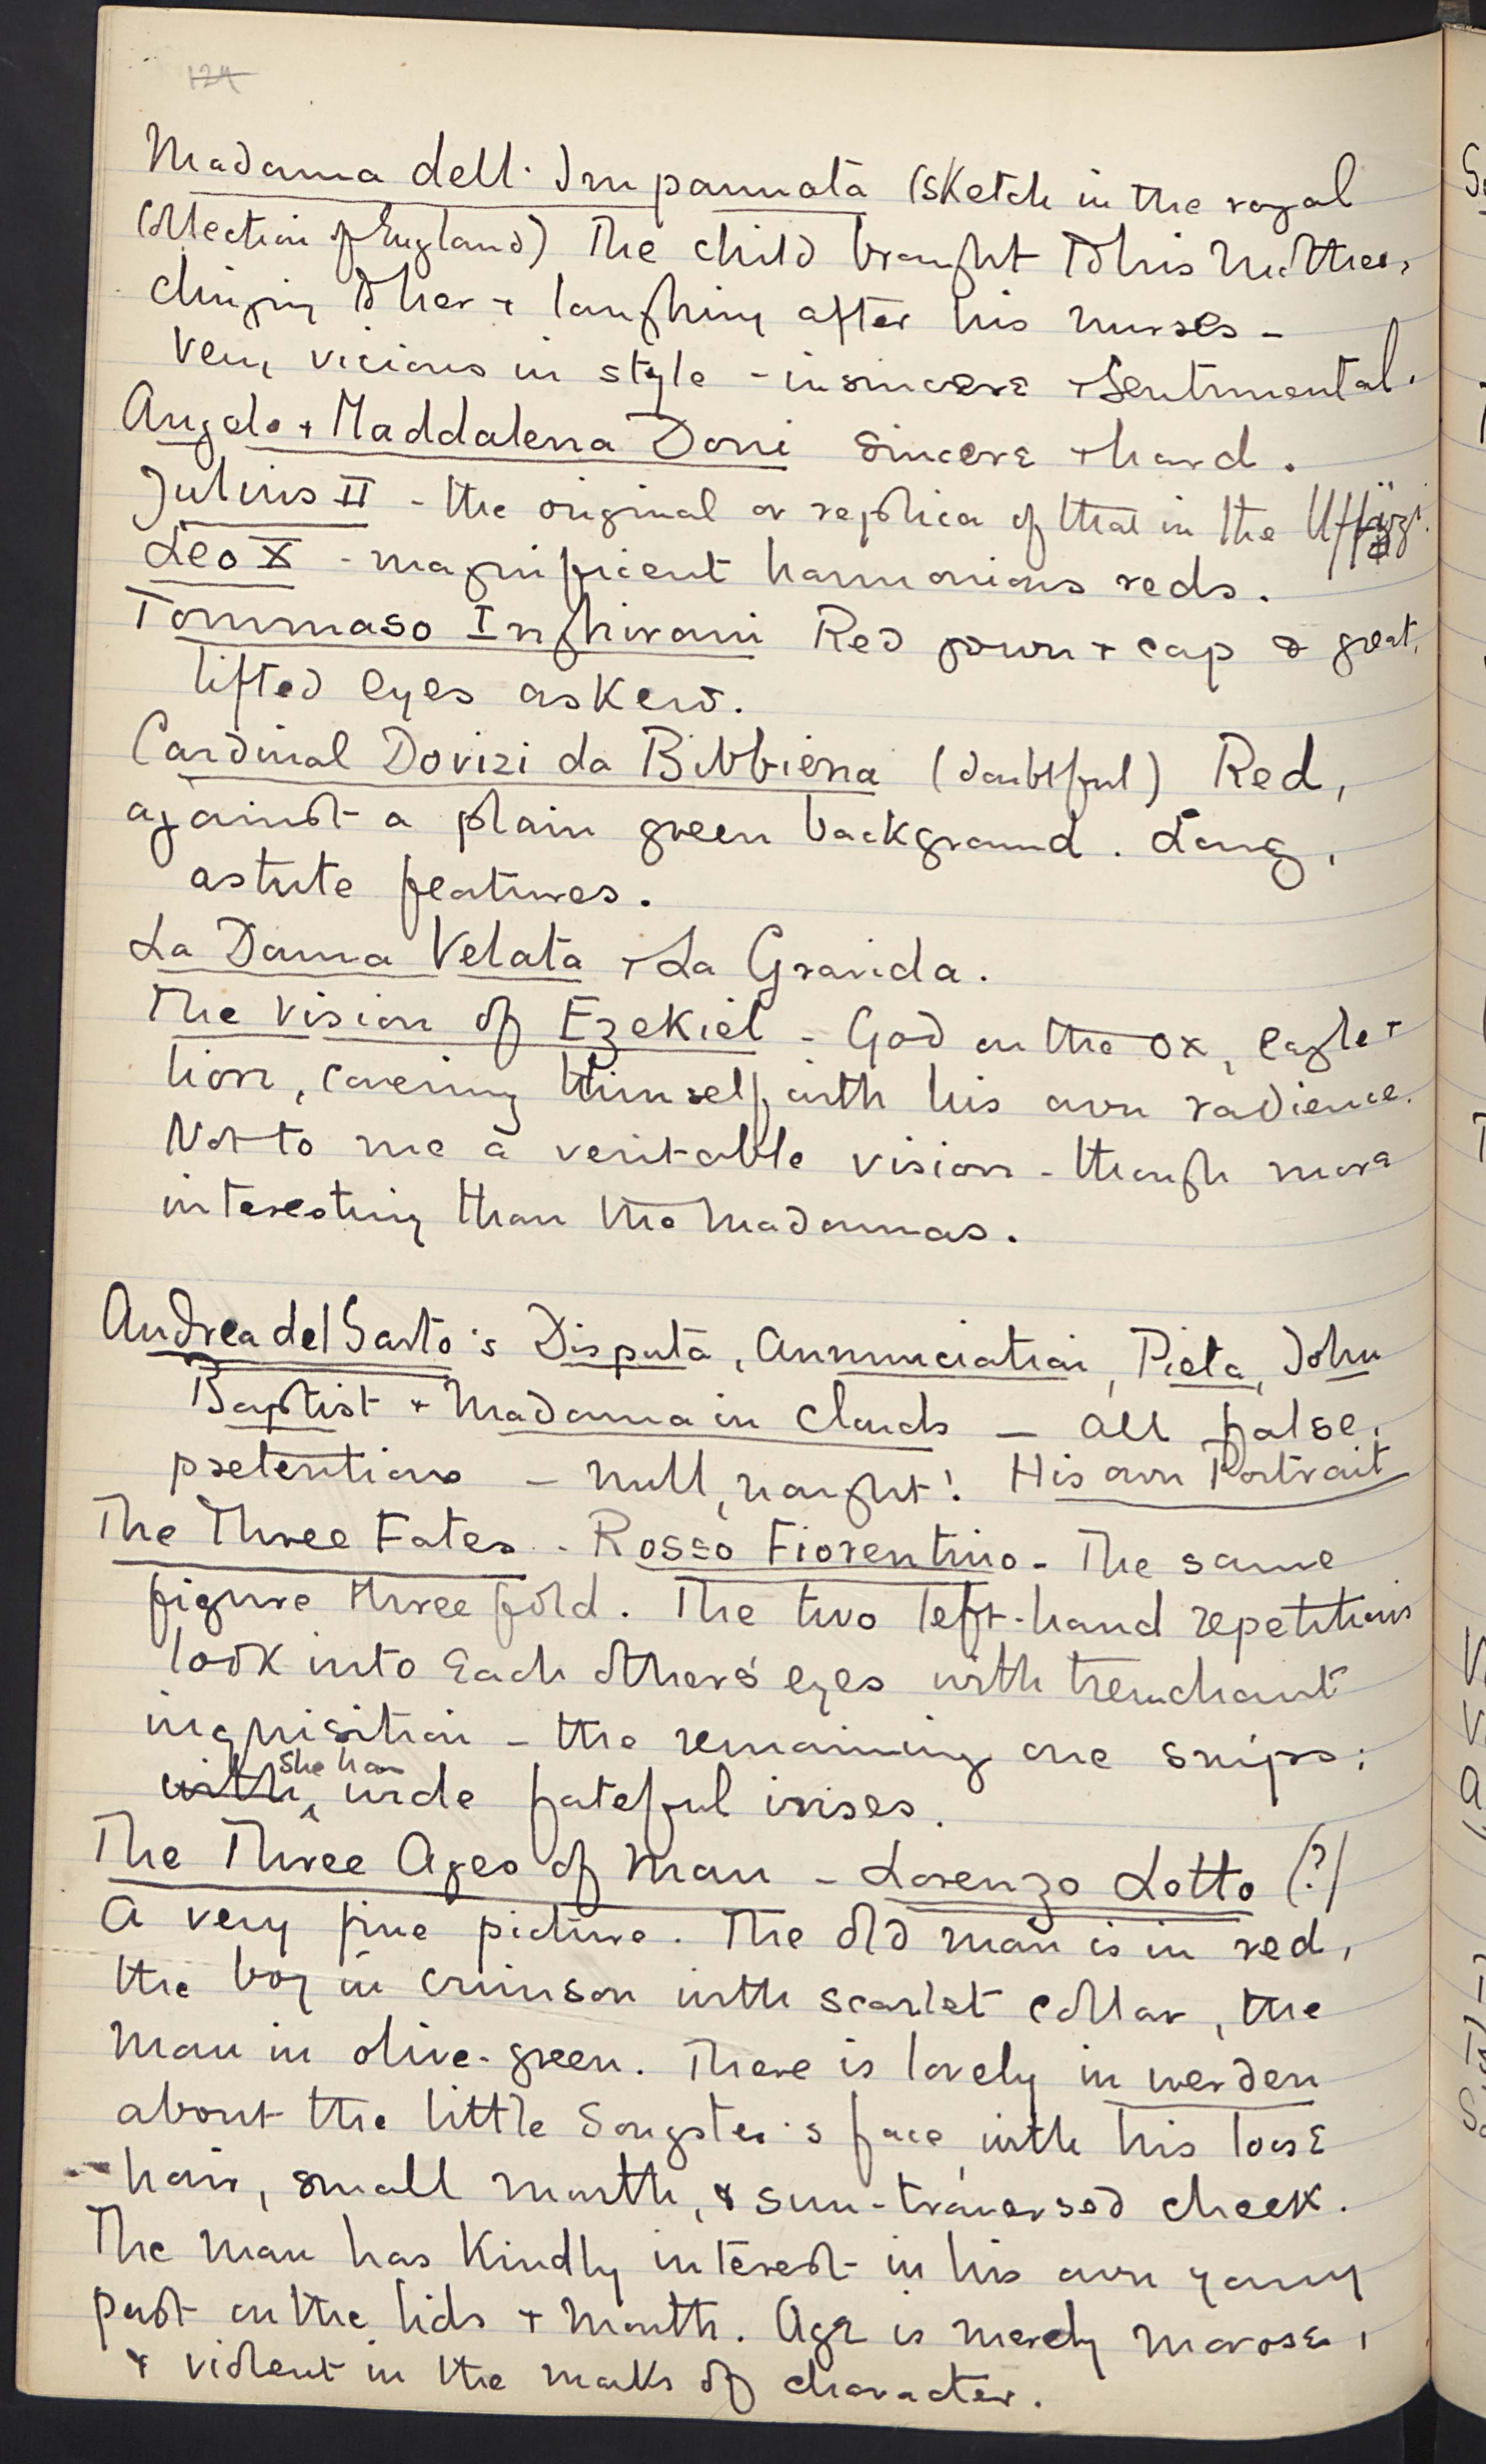 124
Madonna dell' Impannata (sketch in the royal
Collection of England) The child brought to his Mother,
clinging to her + laughing after his nurses -
very vicious in style - insincere + sentimental.
Angelo + Maddalena Doni sincere + hard.
Julius II - the original or replica of that in the Uffizi.
Leo X - magnificent harmonious reds.
Tommaso Inghirami Red gown + cap & great,
lifted eyes askew.
Cardinal Dovizi da Bibbiena (doubtful) Red,
against a plain green background. Long,
astute features.
La Donna Velata + La Gravida.
The Vision of Ezekiel - God on the ox, eagle +
lion, covering Himself with his own radience.
Not to me a veritable vision - though more
interesting than the Madonnas.
Andrea del Sarto's Disputa, Annunciation, Pieta, John
Baptist + Madonna in Clouds - all false,
pretentious - null, naught! His own Portrait
The Three Fates - Rosso Fiorentino - The same
figure three fold. The two left-hand repetitions
look into each others' eyes with trenchant
inquisition - the remaining one snips:
with she has wide fateful irises.
The Three Ages of Man - Lorenzo Lotto (?)
A very fine picture. The old man is in red,
the boy in crimson with scarlet collar, the
man in olive-green. There is lovely in werden
about the little Songster's face, with his loose
hair, small mouth, & sun-traversed cheek.
The man has kindly interest in his own young
past on the lids + mouth. Age is merely morose,
& violent in the marks of character.